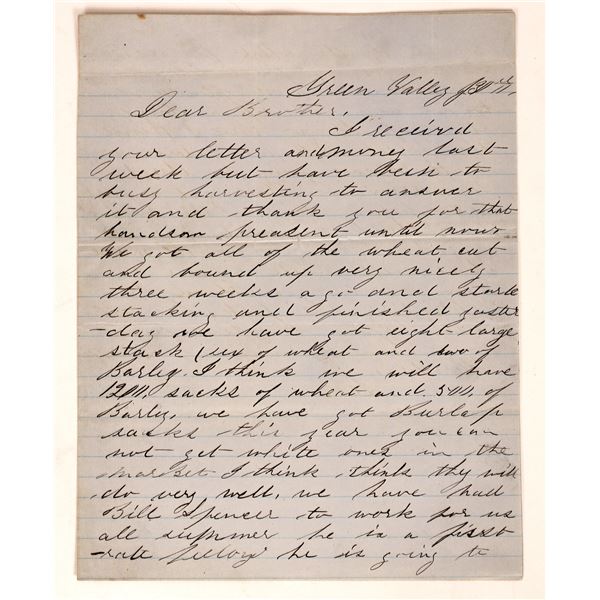 Green Valley
Dear Brother,
I receivd
your letter and money last
week but have bein to
busy harvesting to answer
it and thank you for that
handsom preasent until now
We got all of the wheat cut
and bound up very nicely
three weeks ago and starte
stacking and finished yaster
-day we have got eight large
stack (six of wheat and two of
Barley. I think we will have
1200, sacks of wheat and 500, of
Barley, we have got Burlap
sacks this year you can
not get white ones in the
market I think think they will
do very well, we have had
Bill Spencer to work for us
all summer he is a first
-rate fellow he is going to